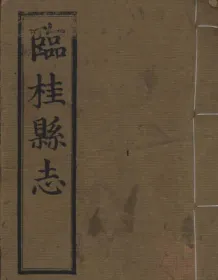 臨桂縣志